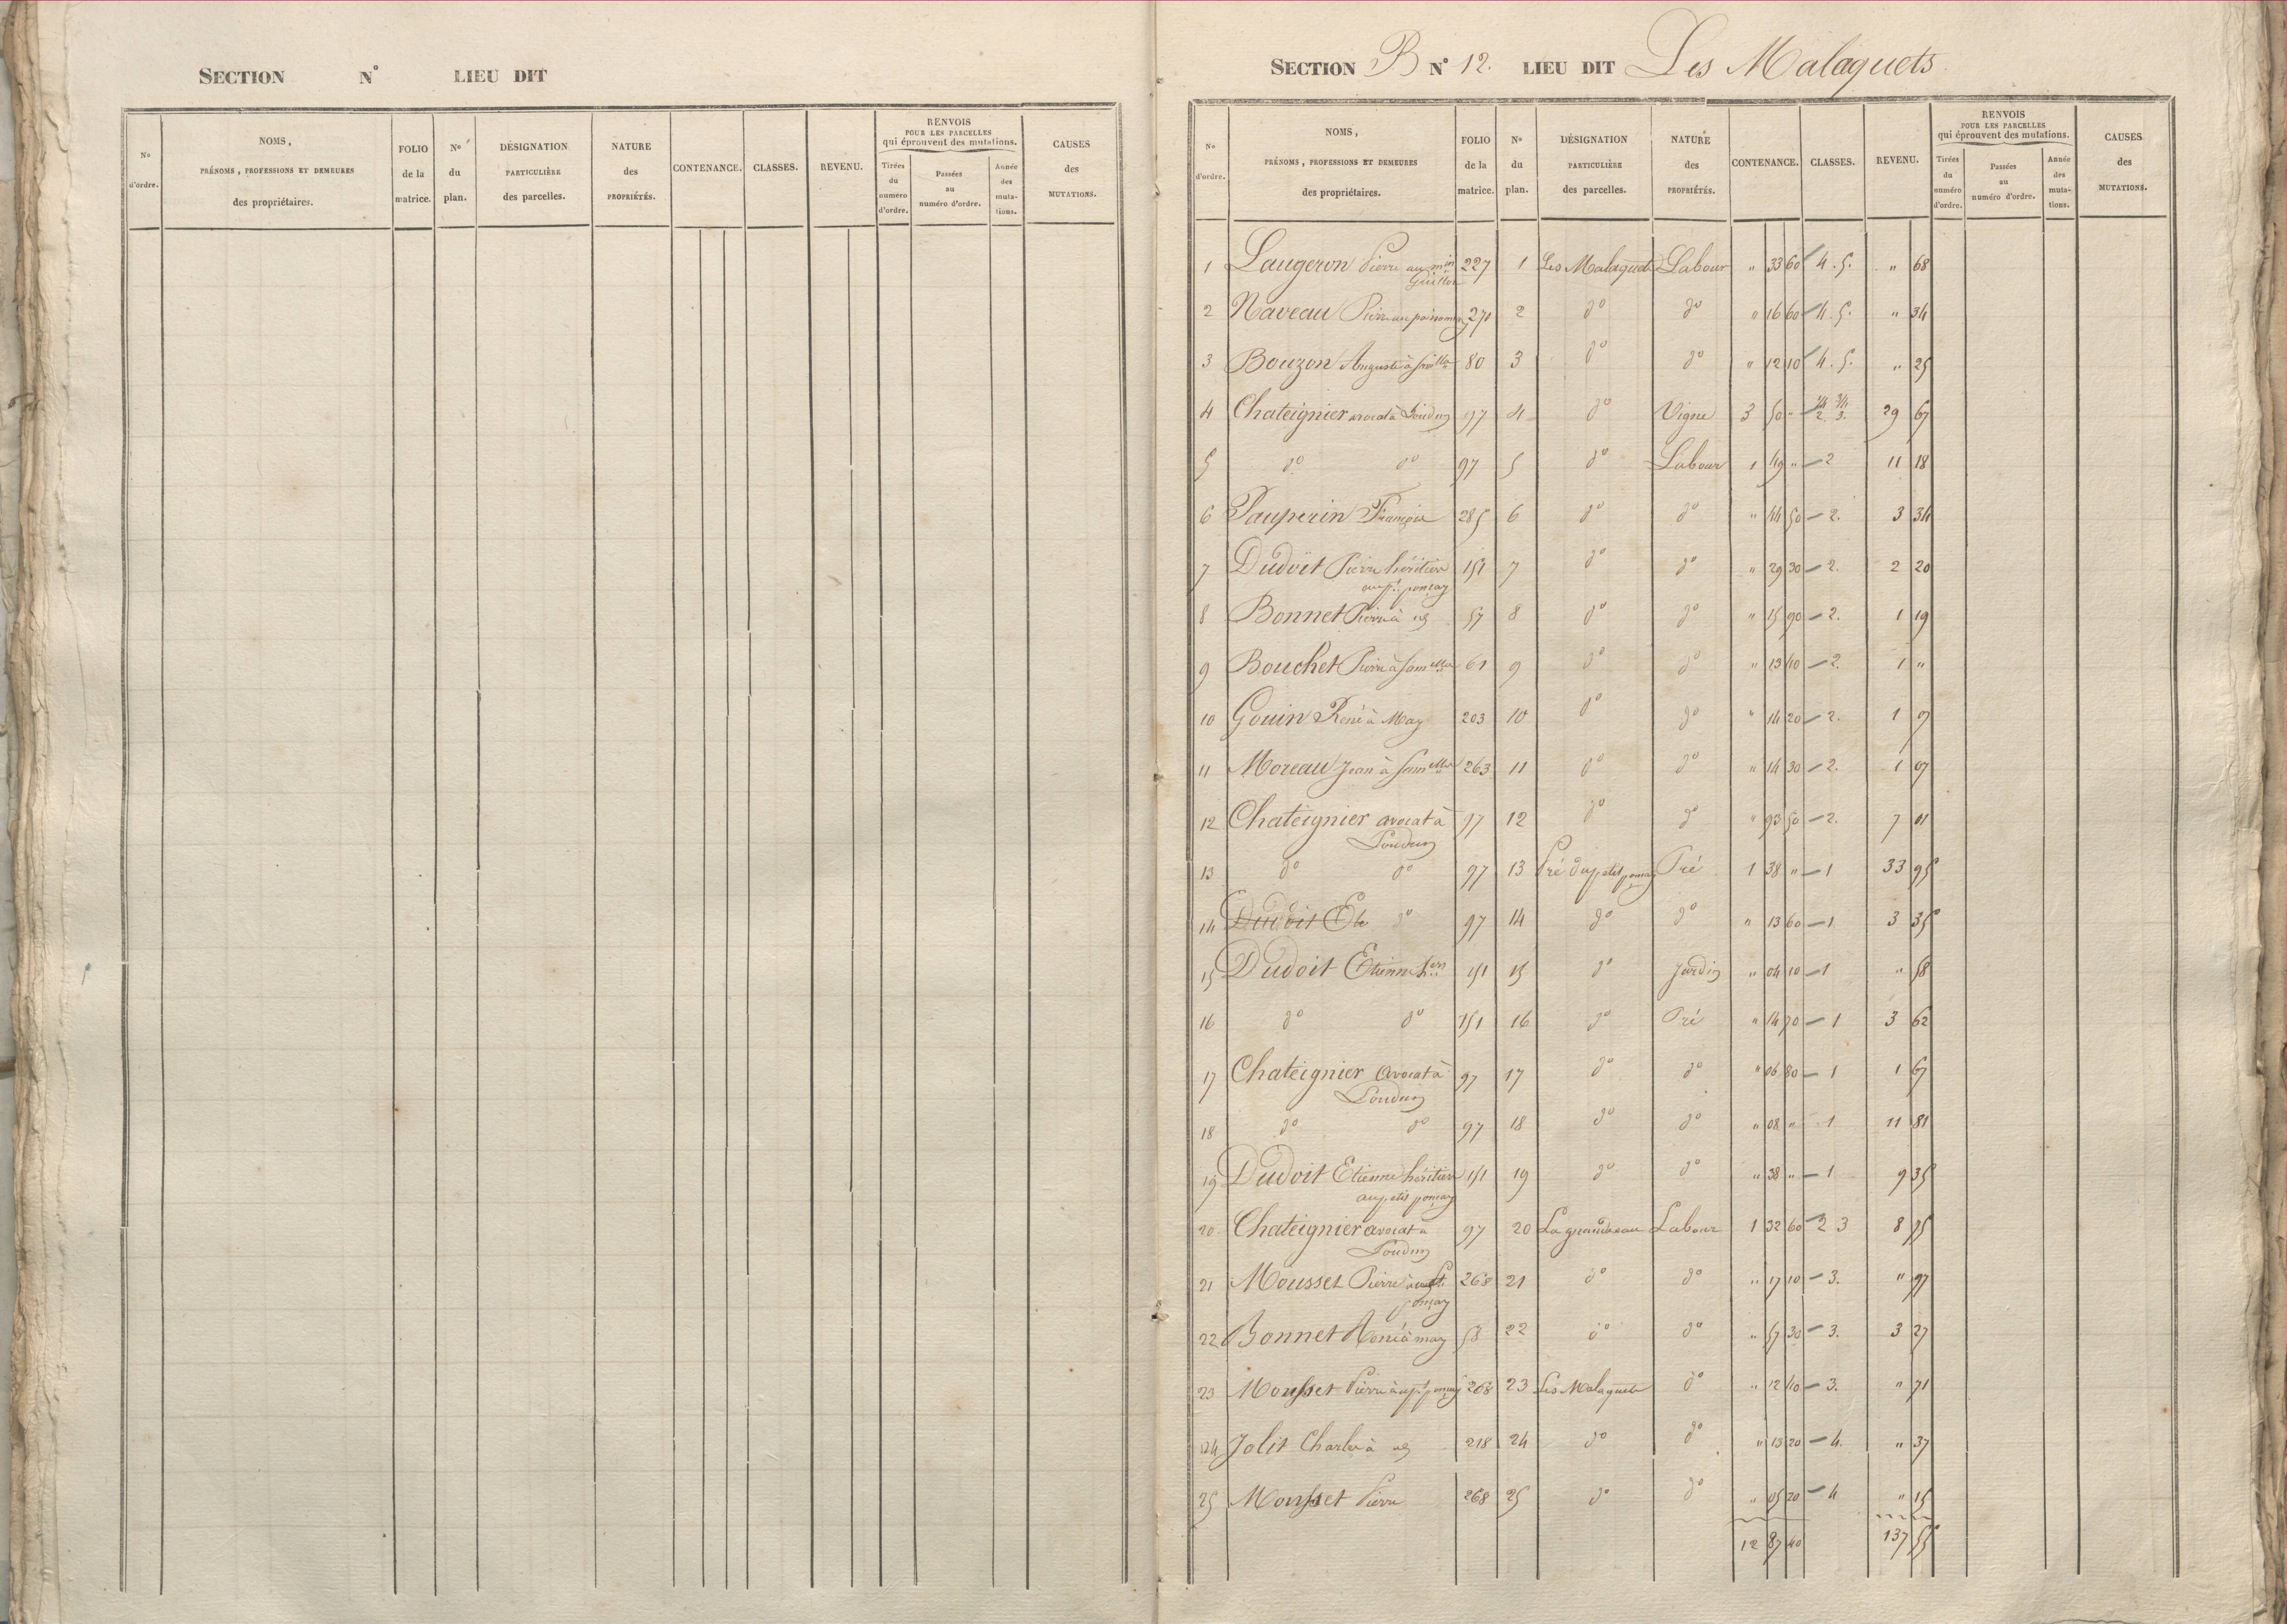 SECTION N° LIEU DIT
N° d'ordre.
NOMS, PRÉNOMS, PROFESSIONS ET DEMEURES des propriétaires.
FOLIO de la matrice.
N° du plan.
DÉSIGNATION PARTICULIÈRE des parcelles.
NATURE des PROPRIÉTÉS.
CONTENANCE.
CLASSES.
REVENU.
RENVOIS POUR LES PARCELLES qui éprouvent des mutations.
Tirées du numéro d'ordre.
Passées au numéro d'ordre.
Année des mutations.
CAUSES des MUTATIONS.
SECTION B N° 12. LIEU DIT Les Malaquets
N° d'ordre.
NOMS, PRÉNOMS, PROFESSIONS ET DEMEURES des propriétaires.
FOLIO de la matrice.
N° du plan.
DÉSIGNATION PARTICULIÈRE des parcelles.
NATURE des PROPRIÉTÉS.
CONTENANCE.
CLASSES.
REVENU.
RENVOIS POUR LES PARCELLES qui éprouvent des mutations.
Tirées du numéro d'ordre.
Passées au numéro d'ordre.
Année des mutations.
CAUSES des MUTATIONS.
1 Laugeron Pierre au min 227 1 Les Malaquets Labour " 33 60 4. 5. " 68
2 Naveau Pierre 270 2 do do " 16 60 4. 5. " 34
3 Bouzon Auguste à 80 3 do do " 12 10 4. 5. " 25
4 Chateignier avocat à Loudun 97 4 do Vigne 3 50 " 1/4 2 3/4 3. 29 67
5 do do 97 5 do Labour 1 49 " 2 11 18
6 Pauperin François 285 6 do do " 44 50 2. 3 34
7 Dudoit Pierre héritier 151 7 do do " 29 30 2. 2 20
au pt. ponçay
8 Bonnet Pierre à 57 8 do do " 15 90 2. 1 19
9 Bouchet Pierre à 61 9 do do " 13 40 2. 1 "
10 Gouin René à May 203 10 do do " 14 20 2. 1 07
11 Moreau Jean à 263 11 do do " 14 30 2. 1 07
12 Chateignier avocat à 97 12 do do " 93 50 2. 7 01
Loudun
13 do do 97 13 Pré du petit ponçay Pré 1 38 " 1 33 95
14 Dudoit Et do 97 14 do do " 13 60 1 3 35
15 Dudoit Etienne hers 151 15 do Jardin " 04 10 1 " 58
16 do do 151 16 do Pré " 14 70 1 3 62
17 Chateignier avocat à 97 17 do do " 06 80 1 1 67
Loudun
18 do do 97 18 do do " 08 " 1 11 81
19 Dudoit Etienne héritier 151 19 do do " 38 " 1 9 35
au petit ponçay
20 Chateignier avocat à 97 20 Labour 1 32 60 2 3 8 75
Loudun
21 Mousset Pierre au pt. 268 21 do do " 17 10 3. " 97
ponçay
22 Bonnet René à may 58 22 do do " 57 30 3. 3 27
23 Mousset Pierre au pt ponçay 268 23 Les Malaquets do " 12 40 3. " 71
24 Jolit Charles à 218 24 do do " 13 20 4. " 37
25 Mousset Pierre 268 25 do do " 05 20 4 " 15
12 87 40 137 55